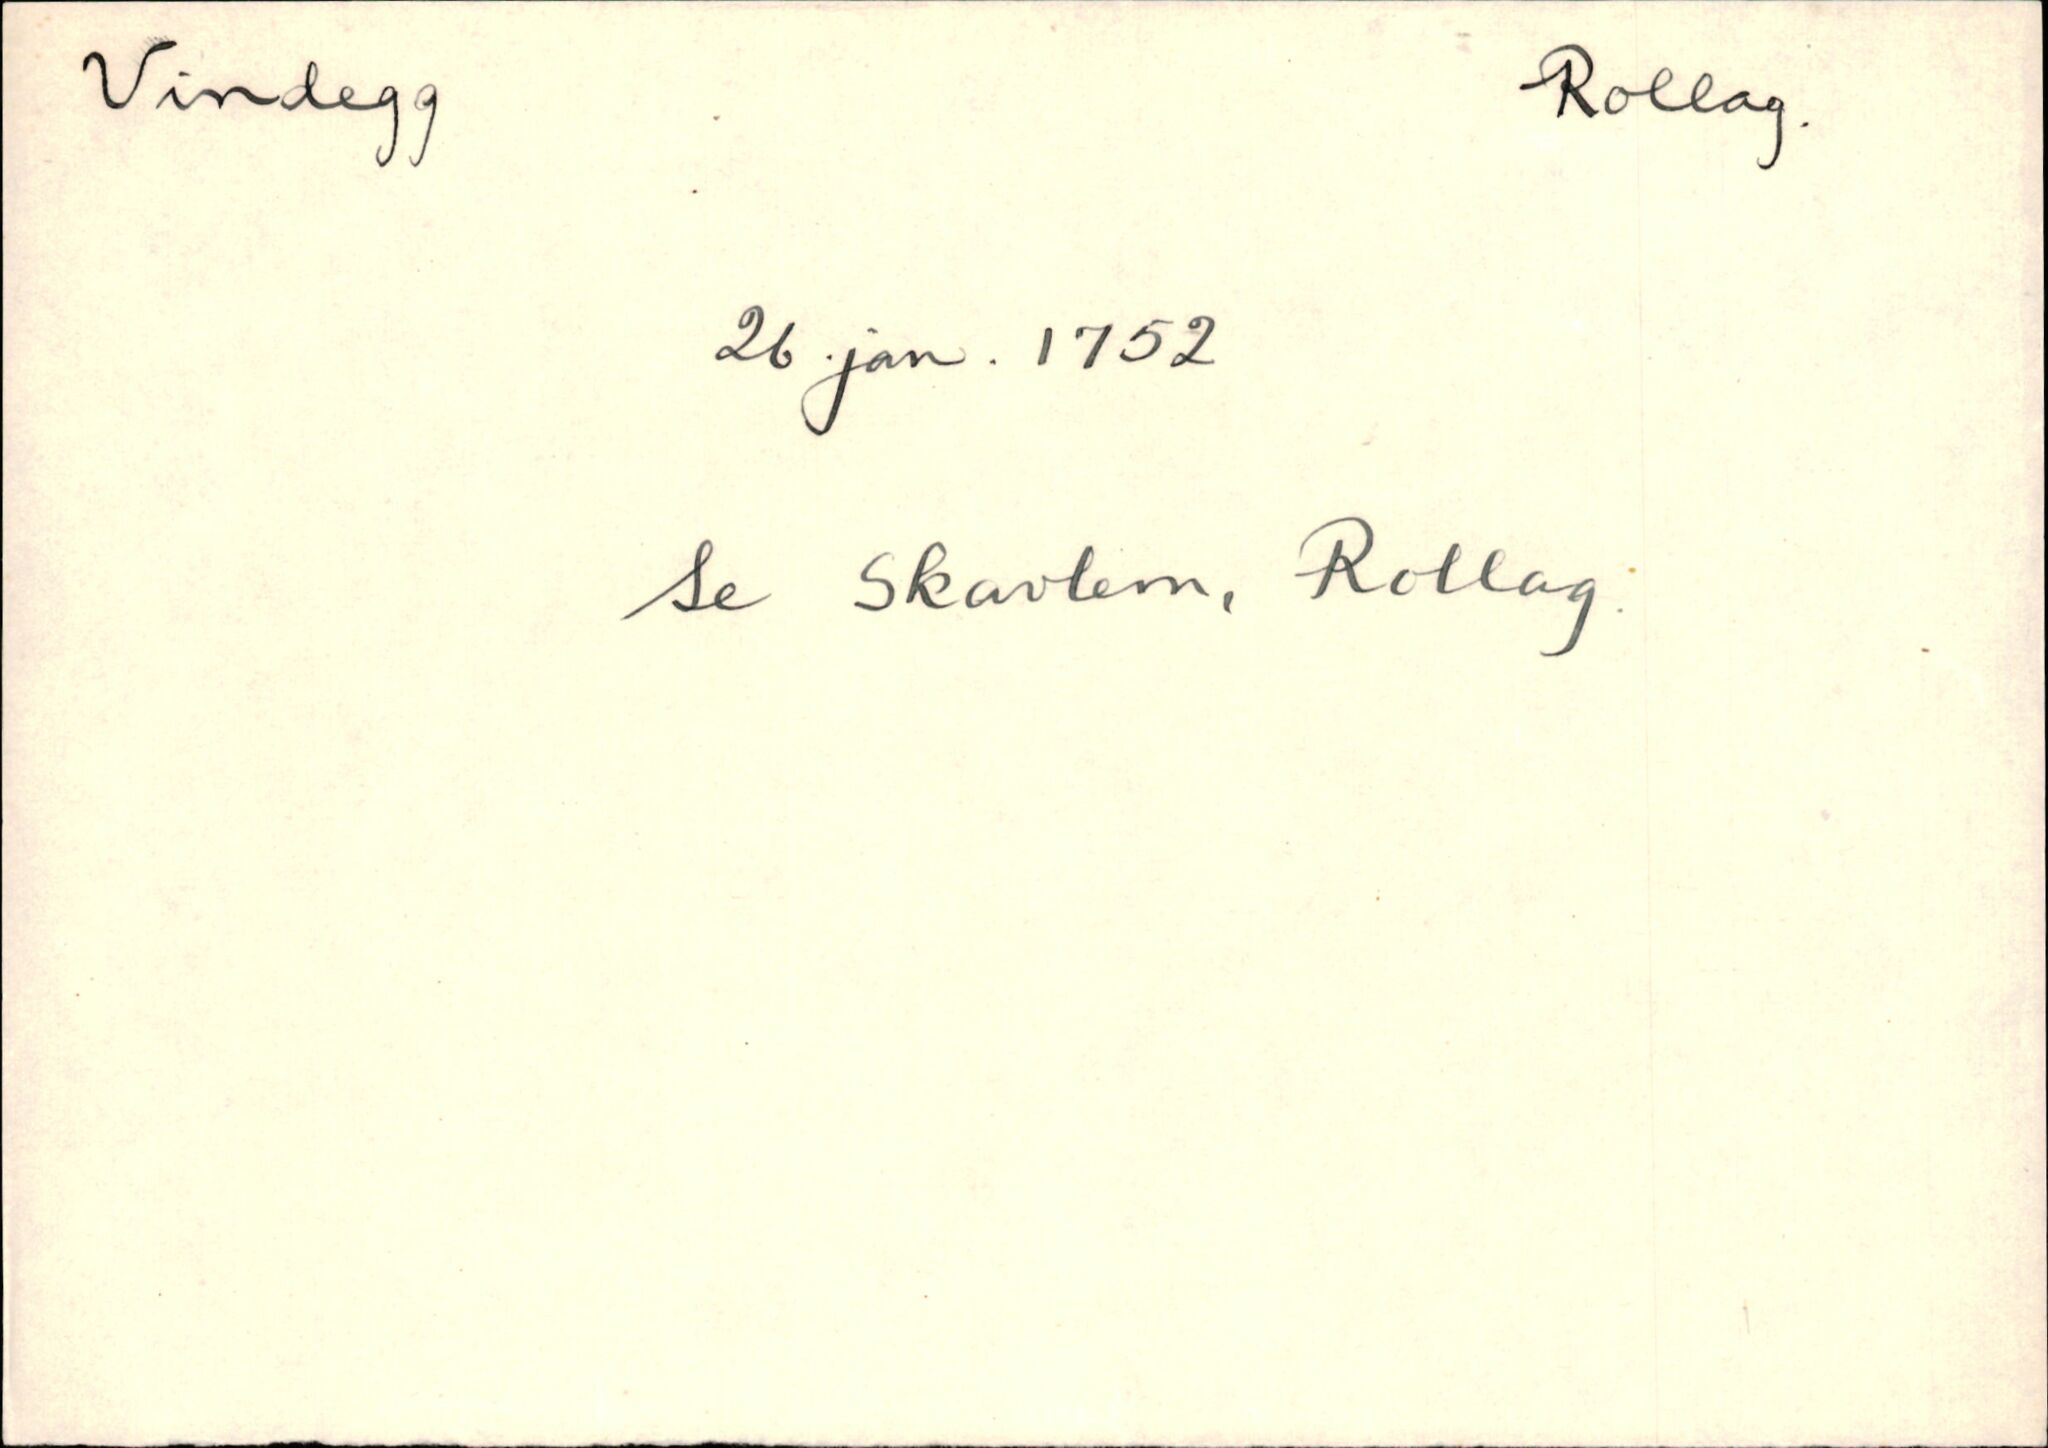 Vindegg Rollag.
26. jan. 1752
Se Skavlem, Rollag.